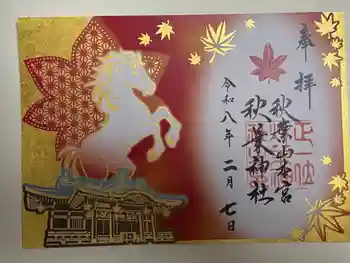 奉拝
秋葉山本宮
秋葉神社
令和八年 二月 七日